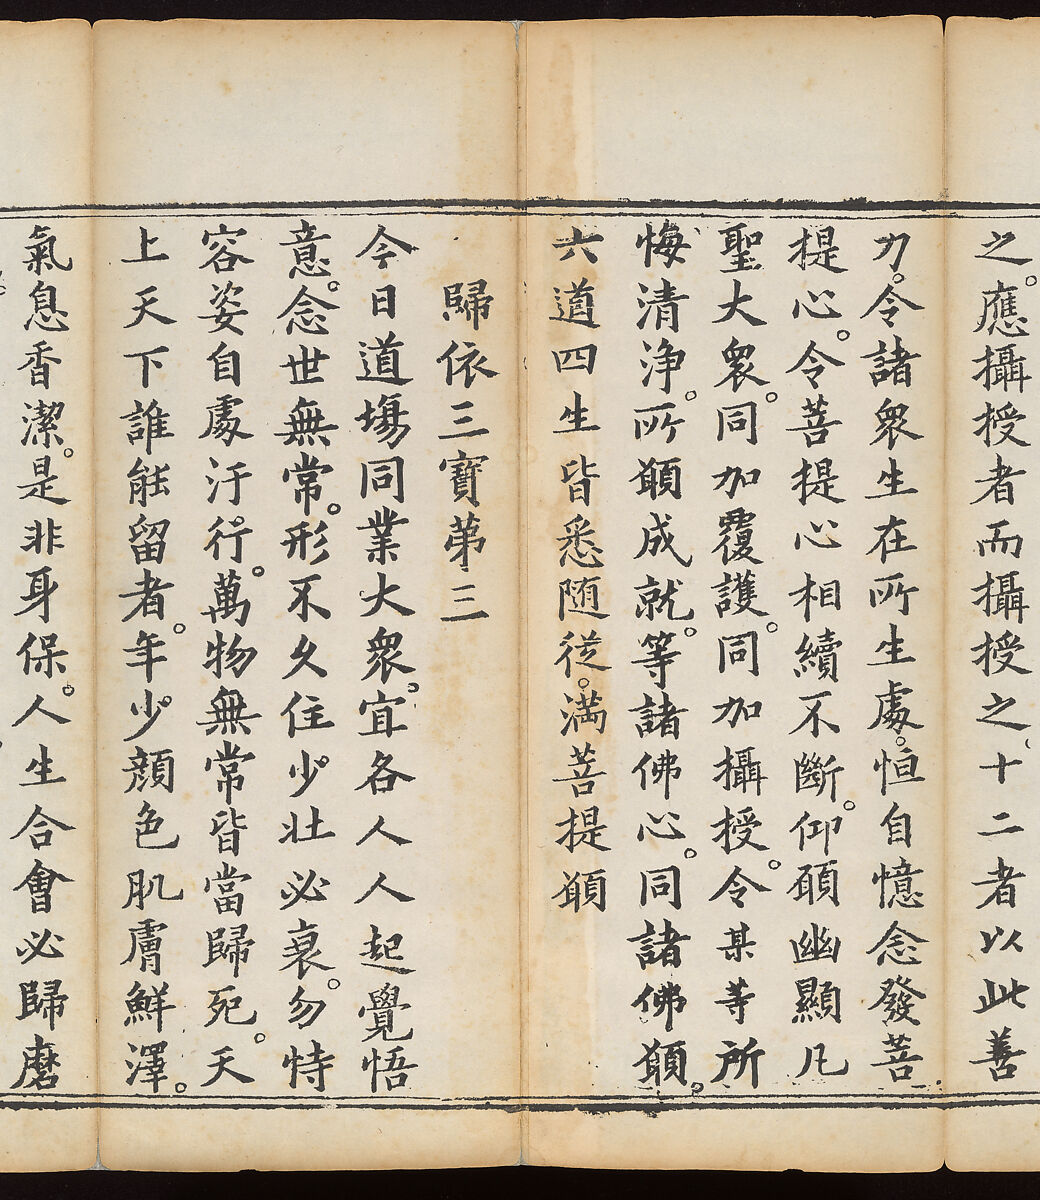 之。應攝授者而攝授之、十二者以此善
力。令諸衆生在所生處。恒自憶念發菩
提心。令菩提心相續不斷。仰願幽顯凡
聖大衆。同加覆護。同加攝授。令某等所
悔清淨。所願成就。等諸佛心。同諸佛願。
六道四生皆悉随從。滿菩提願
歸依三寶第三
今日道場同業大衆。宜各人人起覺悟
意。念世無常。形不久住少壯必衰。勿恃
容姿自處汙行。萬物無常皆當歸死。天
上天下誰能留者。年少顏色肌膚鮮澤。
氣息香潔。是非身保。人生合會必歸磨